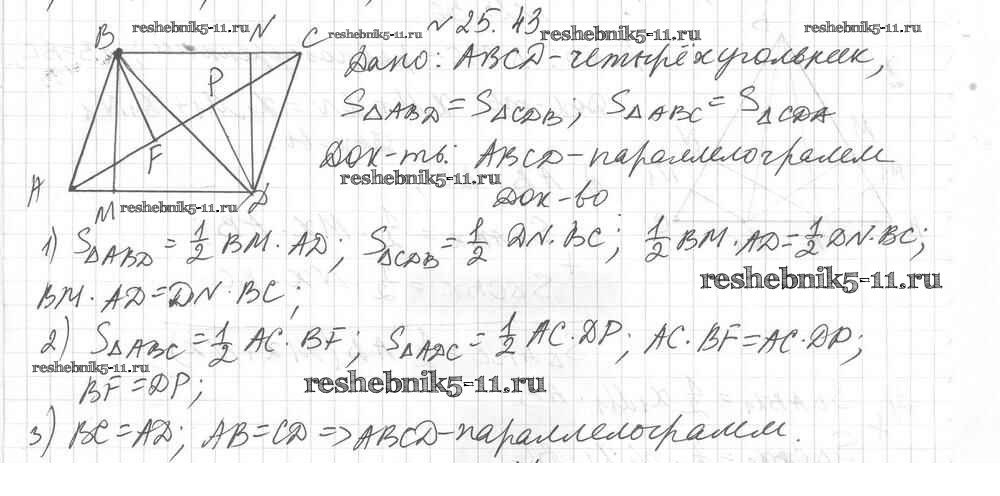 reshebnik5-11.ru
№ 25.43
reshebnik5-11.ru
reshebnik5-11.ru
reshebnik5-11.ru
B N C
P
F
A M D
Дано: ABCD-четырёхугольник,
S△ABD = S△CDB; S△ABC = S△CDA
Док-ть: ABCD-параллелограмм
reshebnik5-11.ru
reshebnik5-11.ru
Док-во
1) S△ABD = 1/2 BM · AD; S△CDB = 1/2 DN · BC; 1/2 BM · AD = 1/2 DN · BC;
reshebnik5-11.ru
BM · AD = DN · BC;
2) S△ABC = 1/2 AC · BF; S△ADC = 1/2 AC · DP; AC · BF = AC · DP;
reshebnik5-11.ru
reshebnik5-11.ru
BF = DP;
3) BC = AD; AB = CD => ABCD-параллелограмм.